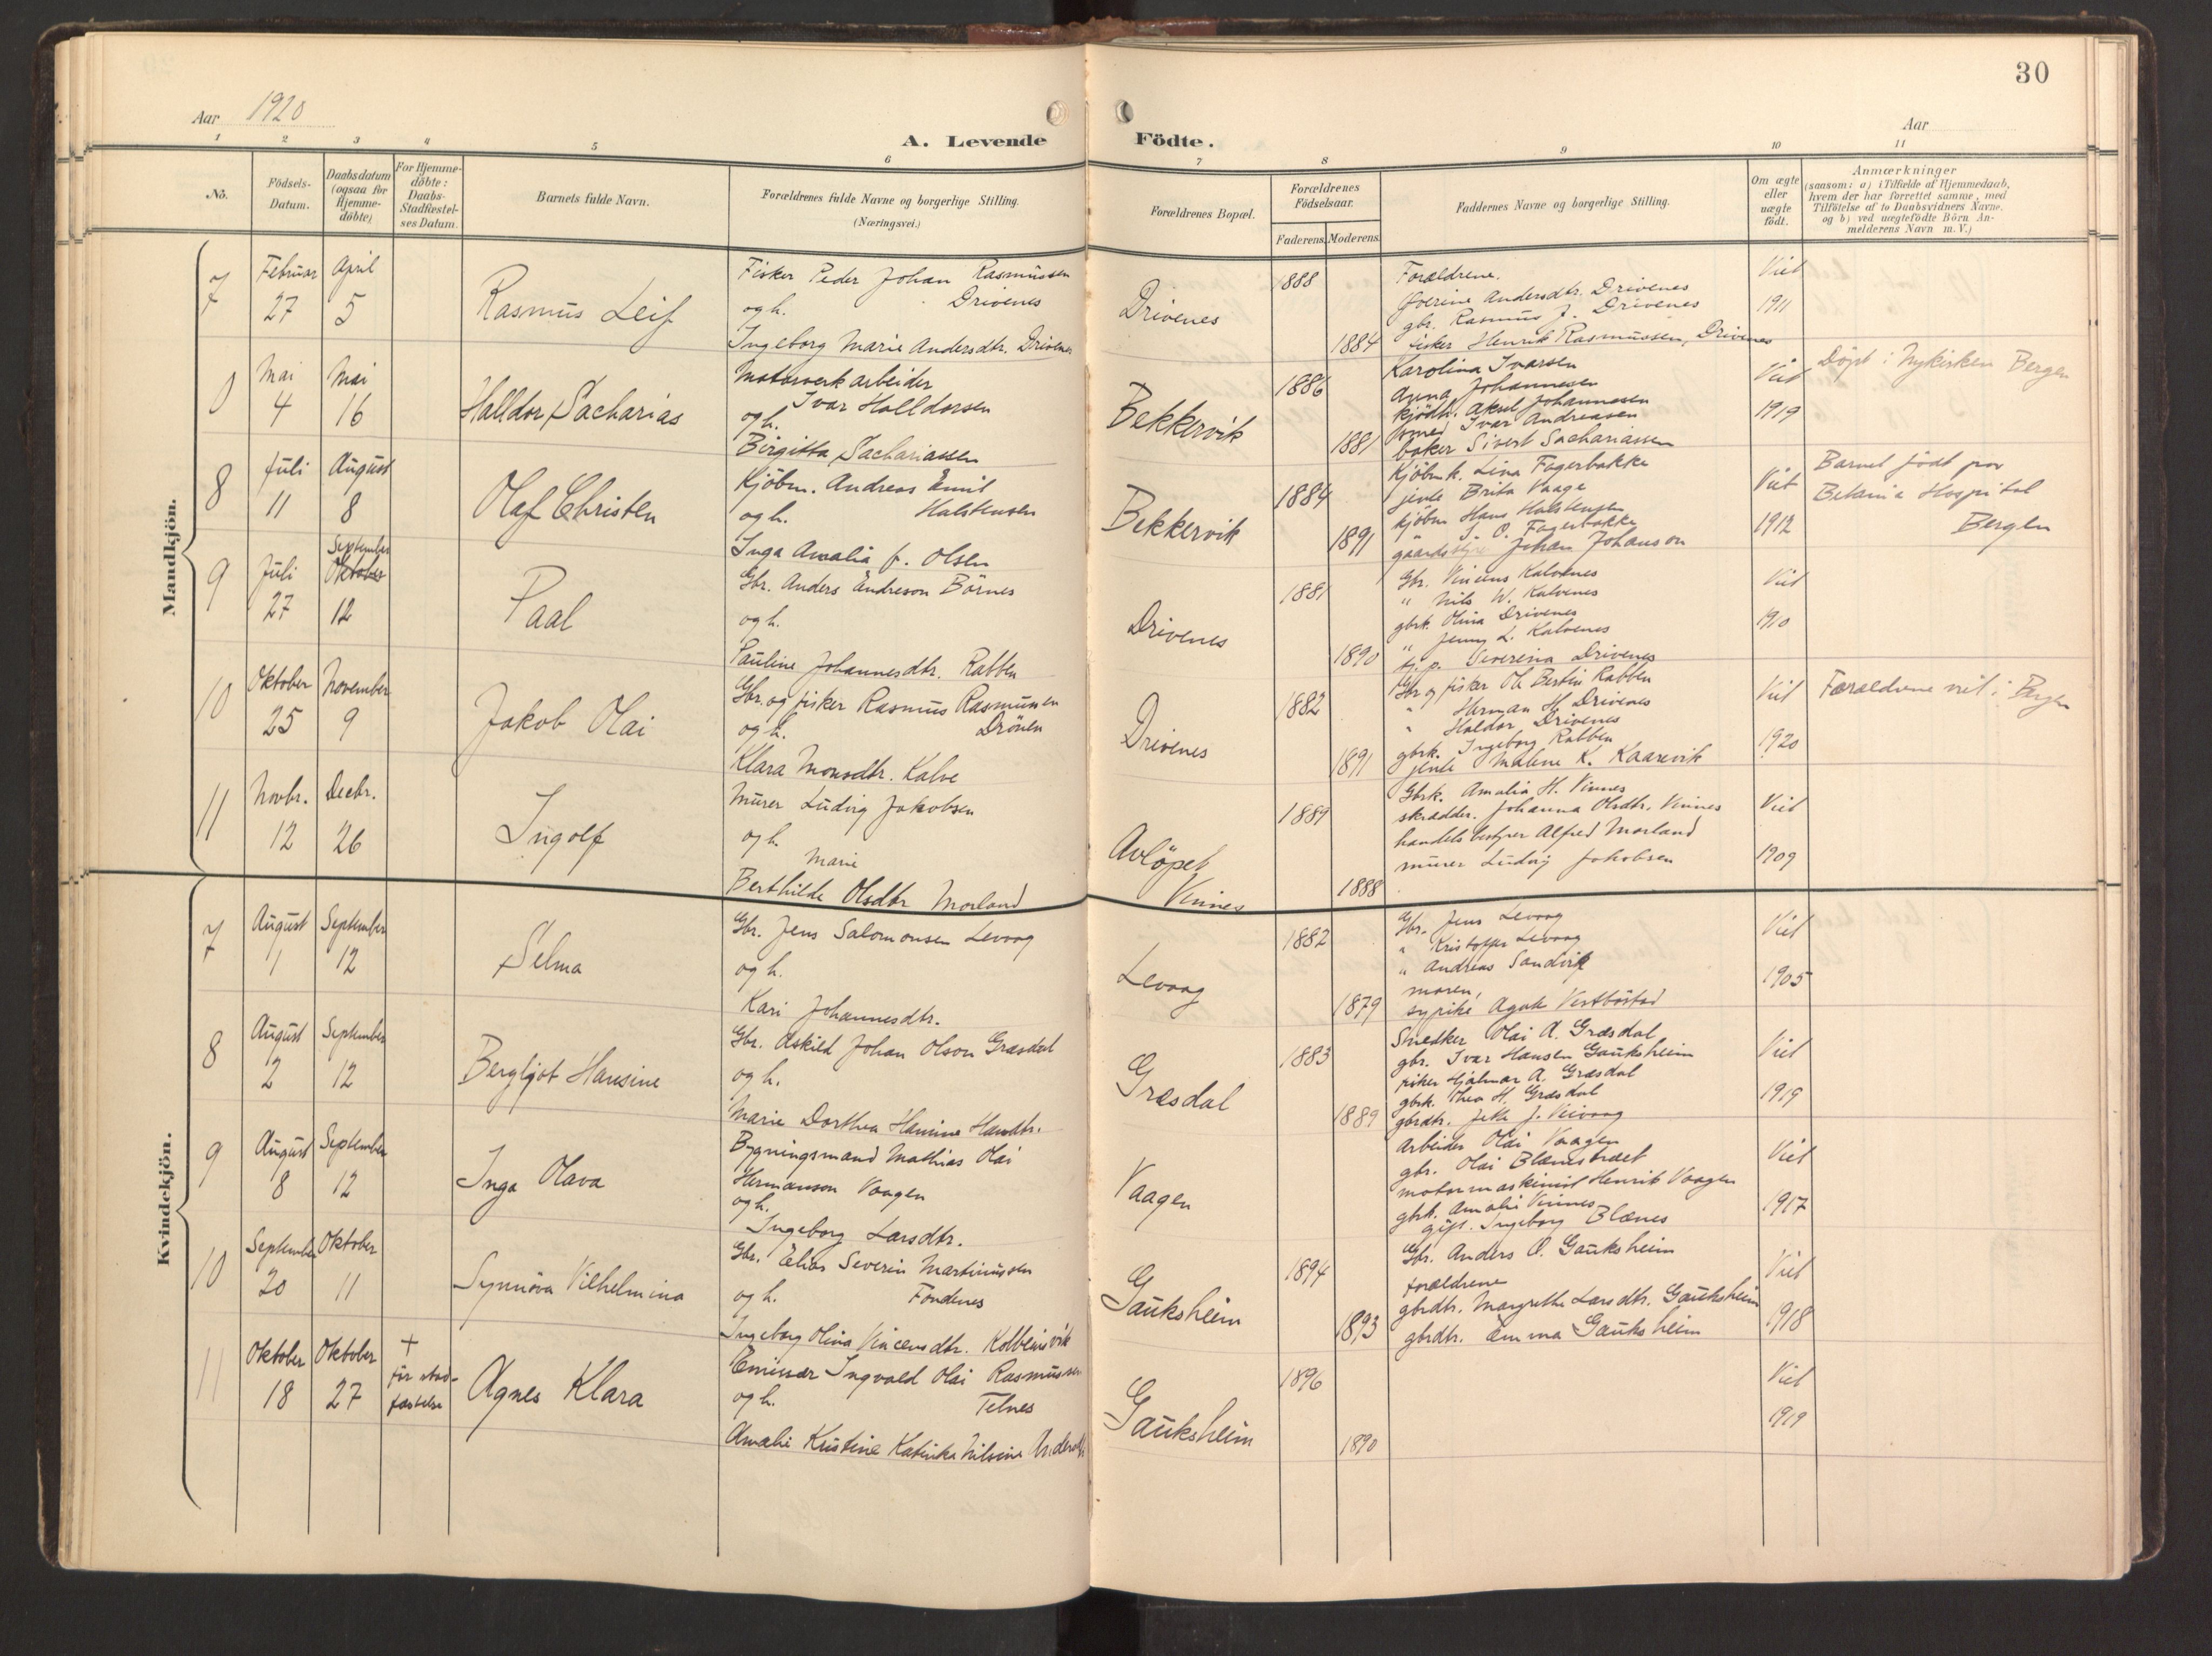 30
Aar 1920
Aar
A. Levende Födte.
1 2 3 4 5 6 7 8 9 10 11
No.
Födsels-Datum.
Daabsdatum (ogsaa for Hjemme-döbte)
For Hjemme-döbte: Daabs-Stadfæstel-ses Datum.
Barnets fulde Navn.
Forældrenes fulde Navne og borgerlige Stilling.
(Næringsvei.)
Forældrenes Bopæl.
Forældrenes Födselsaar.
Faderens. Moderens.
Faddernes Navne og borgerlige Stilling.
Om ægte eller uægte födt.
Anmærkninger
(saasom: a) i Tilfælde af Hjemmedaab, hvem der har forrettet samme, med Tilföielse af to Daabsvidners Navne. og b) ved uægtefödte Börn An-melderens Navn m. V.)
Mandkjön.
7
Februar 27
April 5
Rasmus Leif
Fisker Peder Johan Rasmussen
og h. Drivenes
Ingeborg Marie Andersdtr. Drivenes
Drivenes
1888
1884
Forældrene.
Andersdtr. Drivenes
gbr. Rasmus J. Drivenes
fisker Henrik Rasmussen, Drivenes
Viet
1911
0
Mai 4
Mai 16
Halldor Sacharias
Motorverkarbeider
Ivar Halldorsen
og h.
Birgitta Sachariassen
Bekkervik
1886
1881
Karolina Ivarsen
Anna Johannesen
kjödh. Aksel Johannesen
smed Ivar Andreasen
baker Sivert Sachariassen
Viet
1919
Döpt i Nykirken Bergen
8
Juli 11
August 8
Olaf Christen
Kjöbm. Andreas Emil
og h. Halstensen
Inga Amalia f. Olsen
Bekkervik
1884
1891
Kjöbm.k. Lina Fagerbakke
jente Brita Vaage
kjöbm Hans Halstensen
" J. O. Fagerbakke
Johan Johanson
Viet
1912
Barnet födt paa
Betania Hospital
Bergen
9
Juli 27
September
Oktober
12
Paal
Gbr. Anders Endreson Börnes
og h.
Pauline Johannesdtr. Rabben
Drivenes
1881
1890
Gbr. Vincens Kalvenes
" Nils W. Kalvenes
gbrk. Olina Drivenes
" Jenny L. Kalvenes
tj. p. Severina Drivenes
Viet
1910
10
Oktober 25
November 9
Jakob Olai
Gbr. og fisker Rasmus Rasmussen
og h. Drönen
Klara Monsdtr. Kalve
Drivenes
1882
1891
Gbr og fisker Ole Bertin Rabben
" Herman H. Drivenes
" Haldor Drivenes
gbrk. Ingeborg Rabben
jente Malene K. Kaarevik
Viet
1920
Forældrene viet i Bergen
11
Novbr. 12
Decbr. 26
Ingolf
Murer Ludvig Jakobsen
og h.
Marie
Berthilde Olsdtr Morland
Avlöpet
Vinnes
1889
1888
Gbrk. Amalia H. Vinnes
skrædder. Johanna Olsdtr. Vinnes
handelsbestyrer Alfred Morland
murer Ludvig Jakobsen
Viet
1909
Kvindekjön.
7
August 1
September 12
Selma
Gbr. Jens Salomonsen Levaag
og h.
Kari Johannesdtr.
Levaag
1882
1879
Gbr. Jens Levaag
" Kristoffer Levaag
" Andreas Sandvik
moren,
sypike Agate Vestböstad
Viet
1905
8
August 2
September 12
Bergljot Hansine
Gbr. Askild Johan Olson Græsdal
og h.
Marie Dorthea Hansine Hansdtr.
Græsdal
1883
1889
Snedker Olai A. Græsdal
gbr. Ivar Hansen Gauksheim
fisker Hjalmar A. Græsdal
gbrk. Thea H. Græsdal
gbrdtr. J. Veivaag
Viet
1919
9
August 8
September 12
Inga Olava
Bygningsmand Mathias Olai
Hermanson Vaagen
og h.
Ingeborg Larsdtr.
Vaagen
Arbeider Olai Vaagen
gbr. Olai Blænesbraet
motormaskinist Henrik Vaagen
gbrk. Amalie Vinnes
gift. Ingeborg Blænes
Viet
1917
10
September 20
Oktober 11
Synnöva Vilhelmina
Gbr. Elias Severin Martinussen
og h. Fondenes
Ingeborg Olina Vincensdtr. Kolbeinsvik
Gauksheim
1894
1893
Gbr. Anders O. Gauksheim
forældrene
gbrdtr. Margrethe Larsdtr. Gauksheim
gbrdtr. Emma Gauksheim
Viet
1918
11
Oktober 18
Oktober 27
+
för stad-
fæstelse
Agnes Klara
Emissær Ingvald Olai Rasmussen
og h. Telnes
Amalie Kristine Katinka Nilsine
Gauksheim
1896
1890
Viet
1919